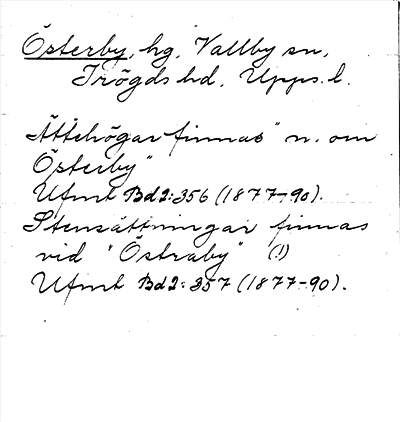 Österby, hg, Vallby sn,
Trögds hd, Upps. l.
Ättehögar finnas "n. om
Österby"
Ufmt Bd2:356 (1877-90).
Stensättningar finnas
vid "Östraby" (!)
Ufmt Bd2:357 (1877-90).